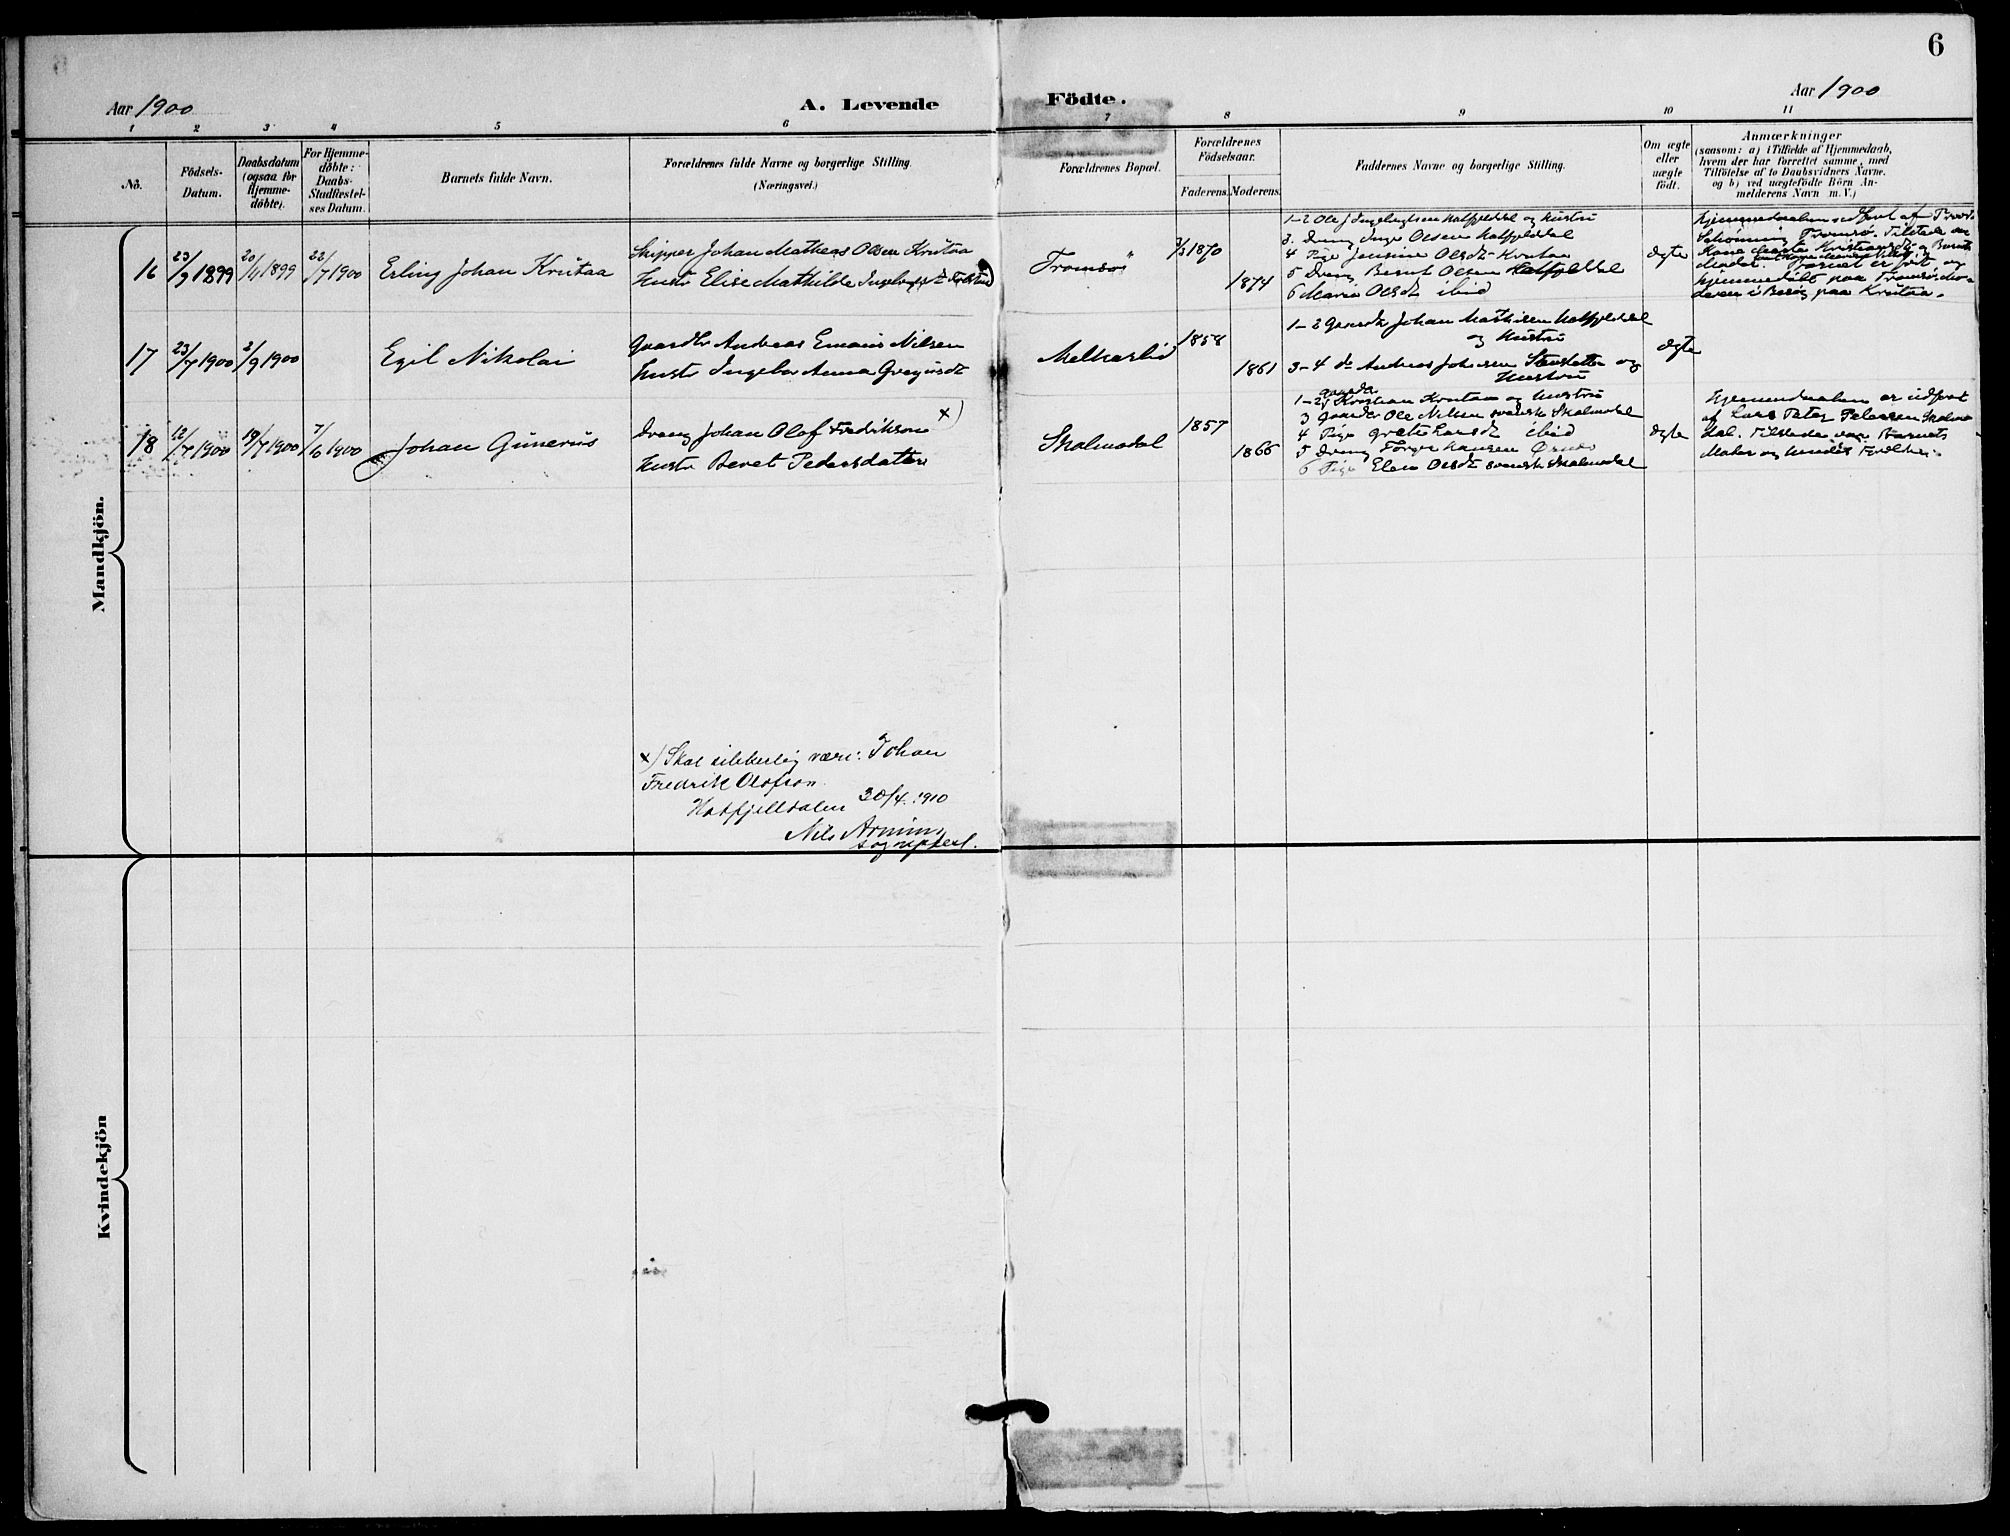 6
Aar 1900
A. Levende Födte.
Aar 1900
1 2 3 4 5 6 7 8 9 10 11
No.
Födsels-
Datum.
Daabsdatum
(ogsaa for
Hjemme-
döbte).
For Hjemme-
döbte:
Daabs-
Stadfæstel-
ses Datum.
Barnets fulde Navn.
Forældrenes fulde Navne og borgerlige Stilling.
(Næringsvei.)
Forældrenes Bopæl.
Forældrenes
Födselsaar.
Faderens. Moderens.
Faddernes Navne og borgerlige Stilling.
Om ægte
eller
uægte
födt.
Anmærkninger
(saasom: a) i Tilfælde af Hjemmedaab,
hvem der har forrettet samme, med
Tilföielse af to Daabsvidners Navne.
og b) ved uægtefödte Börn An-
melderens Navn m. V.)
Mandkjön.
16 23/9 1899 20/11 1899 22/7 1900 Erling Johan Krutaa
Skipper Johan Mathias Olsen Krutaa
Hustr Elise Mathilde
Tromsö
1870
1874
1-2 Ole J Ingebrigtsen Hatfjeldal og Hustru
3. Dreng Inge Olsen Hatfjeldal
4 Pige Jensine Olsdt Krutaa
5 Dreng Bernt Olsen Hatfjeldal
6 Maria Olsdt ibid
ægte
Hjemmedaaben udfört af
Schönning Tromsö. Tilstede var
Kone
Moder. Barnet er födt og
hjemmedöbt paa Tromsö. Mo-
deren i Besög paa Krutaa.
17 23/7 1900 2/9 1900 Egil Nikolai
Gaardbr Andreas Emaus Nilsen
Hustr Ingebor Anna Gregusdt
Melkarlid
1858
1861
1-2 Gaardb Johan Mathisen Hatfjeldal
og Hustru
3-4 do Andreas Johnsen og
Hustru
ægte
18 12/7 1900 19/7 1900 7/10 1900 Johan Gunerius
Dreng Johan Olof Fredrikson x)
Hustr Beret Pedersdatter
Skalmodal
1857
1866
Gaardb
1-2 Kristian Krutaa og Hustru
3 Gaardbr Ole Nilsen svensk Skalmodal
4 Pige Grete Larsdt ibid
5 Dreng Hansen
6 Pige Elen Olsdt svensk Skalmodal
ægte
Hjemmedaaben er udfört
af Lars Peter Petersen Skalmo-
dal. Tilstede var Barnets
Moder og hendes
x) Skal sikkerlig være: Johan
Fredrik Olofson.
Hatfjelldalen 30/4. 1910
Nils Arnim
sogneprest.
Kvindekjön